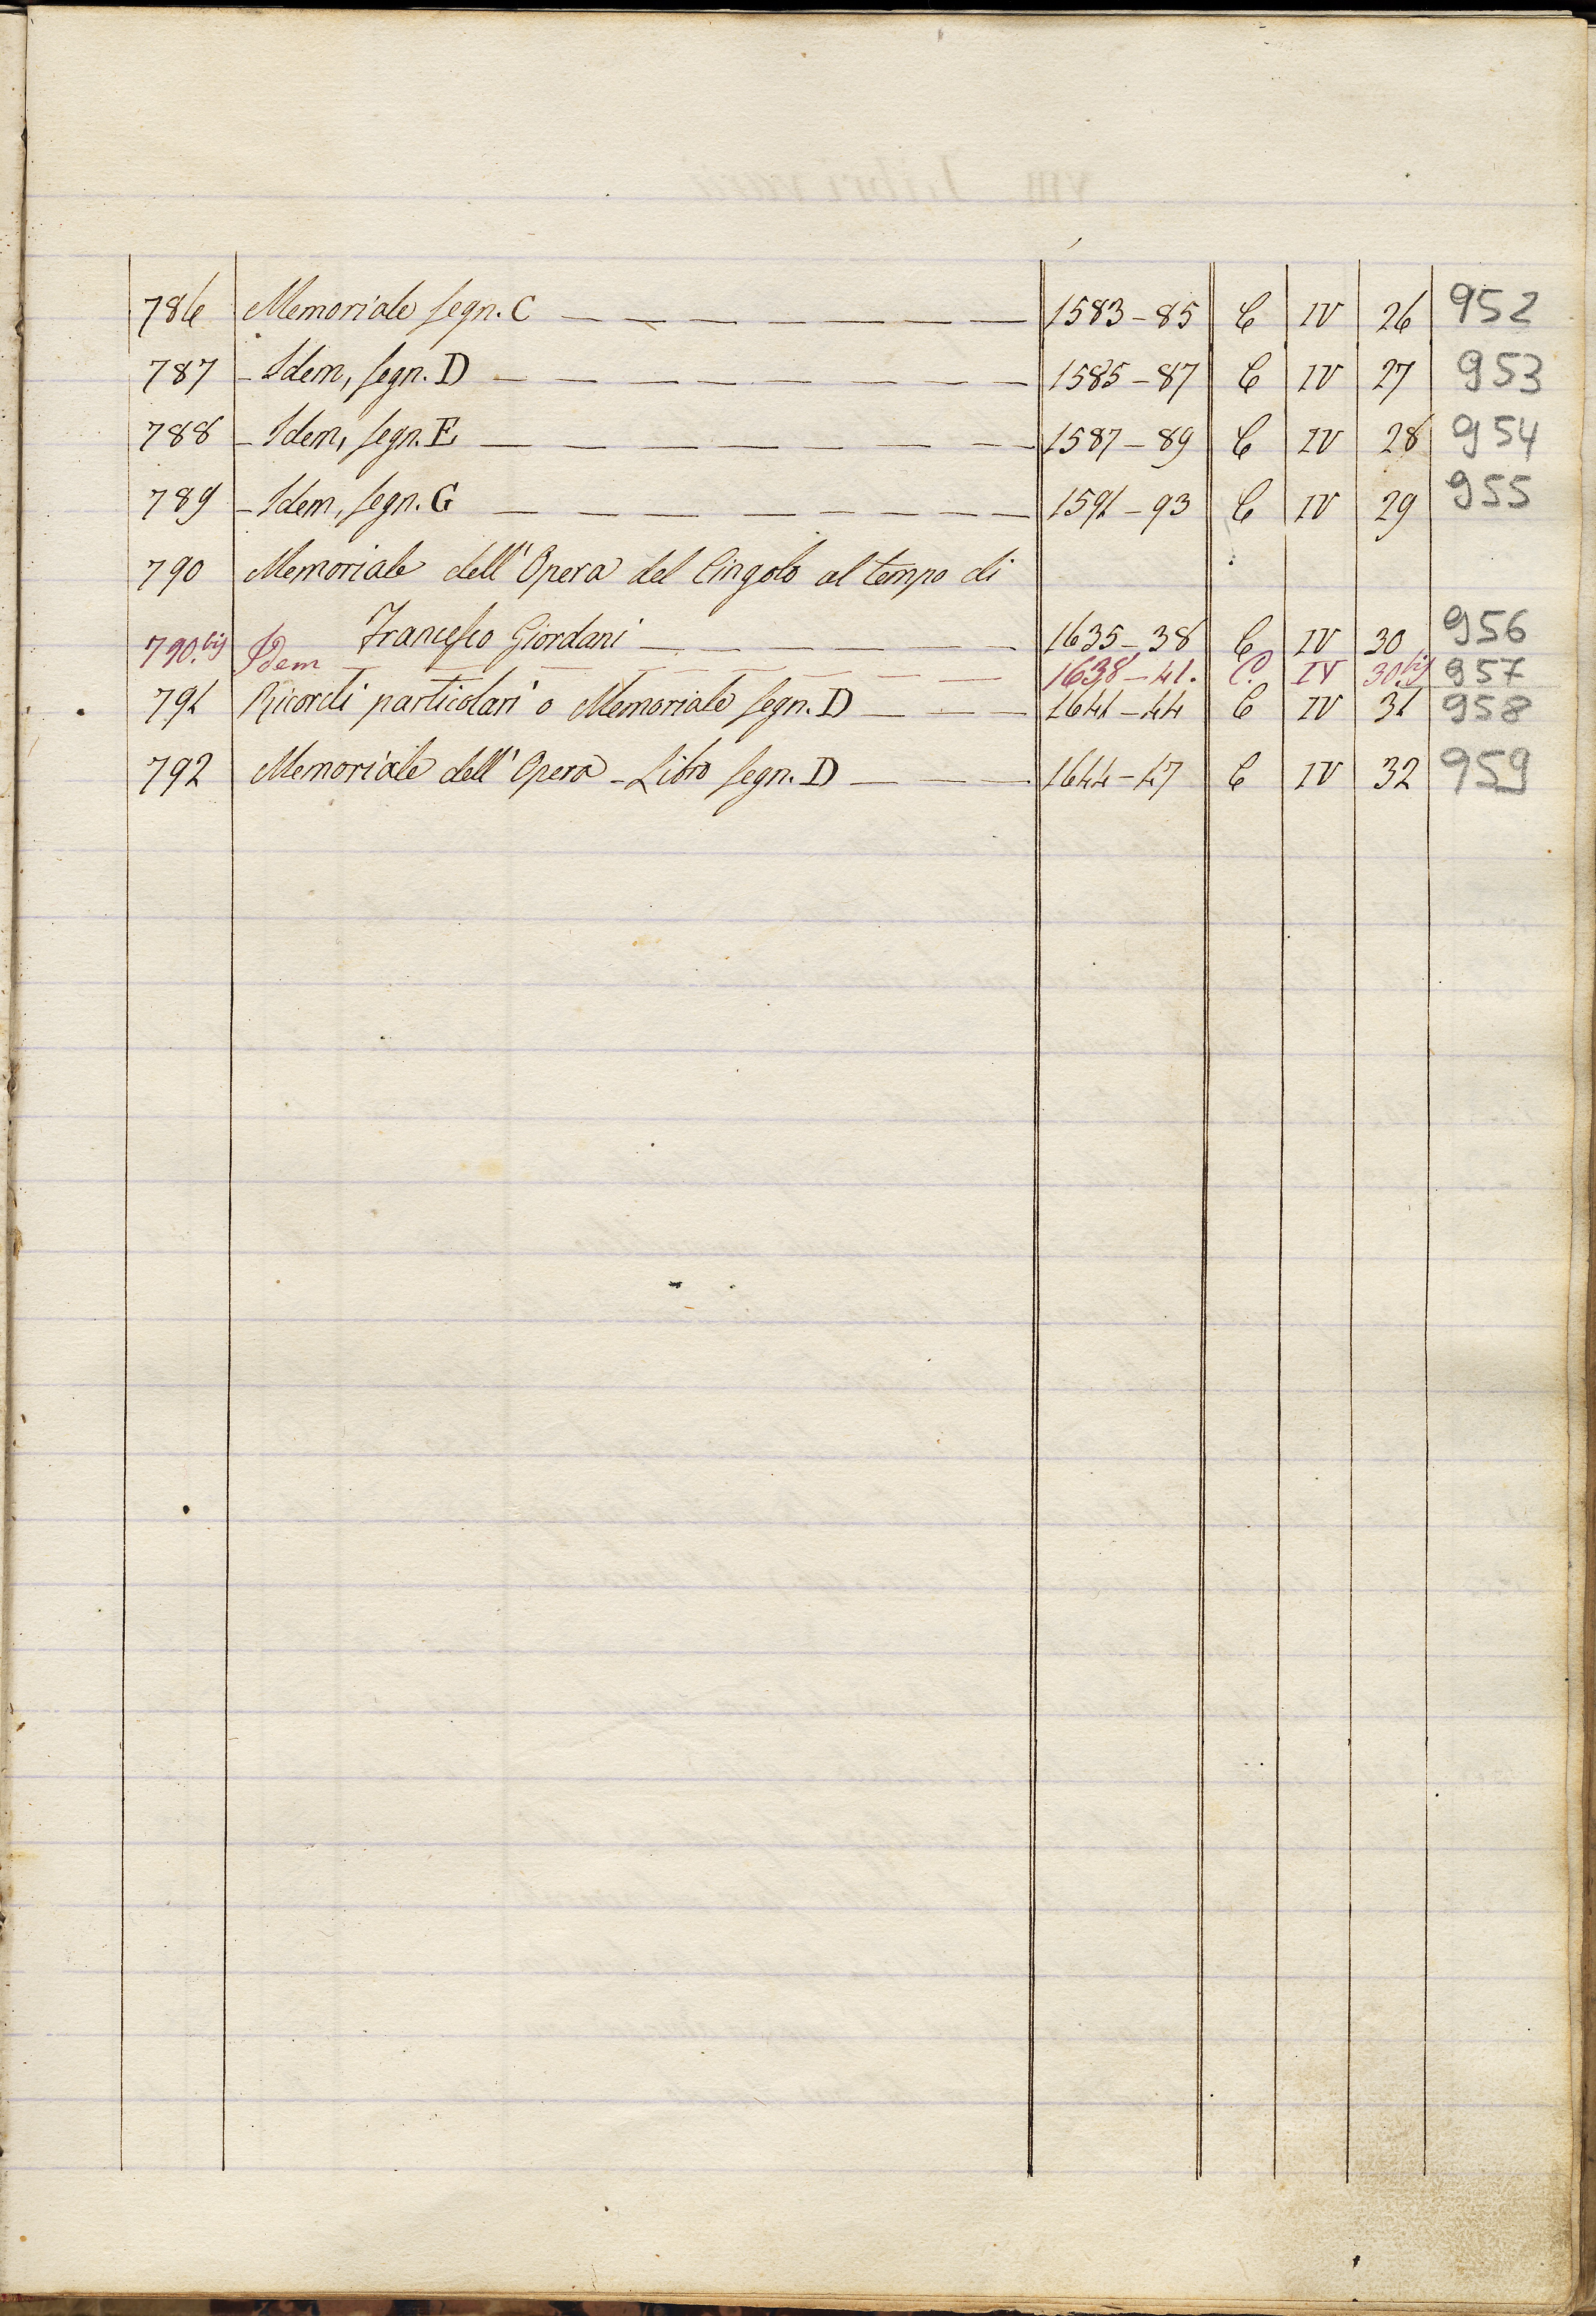 786 Memoriale segn. C — — — — — — — — 1583-85 C IV 26 952
787 - Idem, segn. D — — — — — — — — — 1585-87 C IV 27 953
788 - Idem, segn. E — — — — — — — — 1587-89 C IV 28 954
789 - Idem, segn. G — — — — — — — — — 1591-93 C IV 29 955
790 Memoriale dell'Opera del Cingolo al tempo di
Francesco Giordani — — — — — — 1635-38 C IV 30 956
790.bis Idem — — — — — — — — — 1638-41. C. IV 30.bis 957
791 Ricordi particolari o Memoriale segn. D — — — 1641-44 C IV 31 958
792 Memoriale dell'Opera - Libro segn. D — — — 1644-47 C IV 32 959